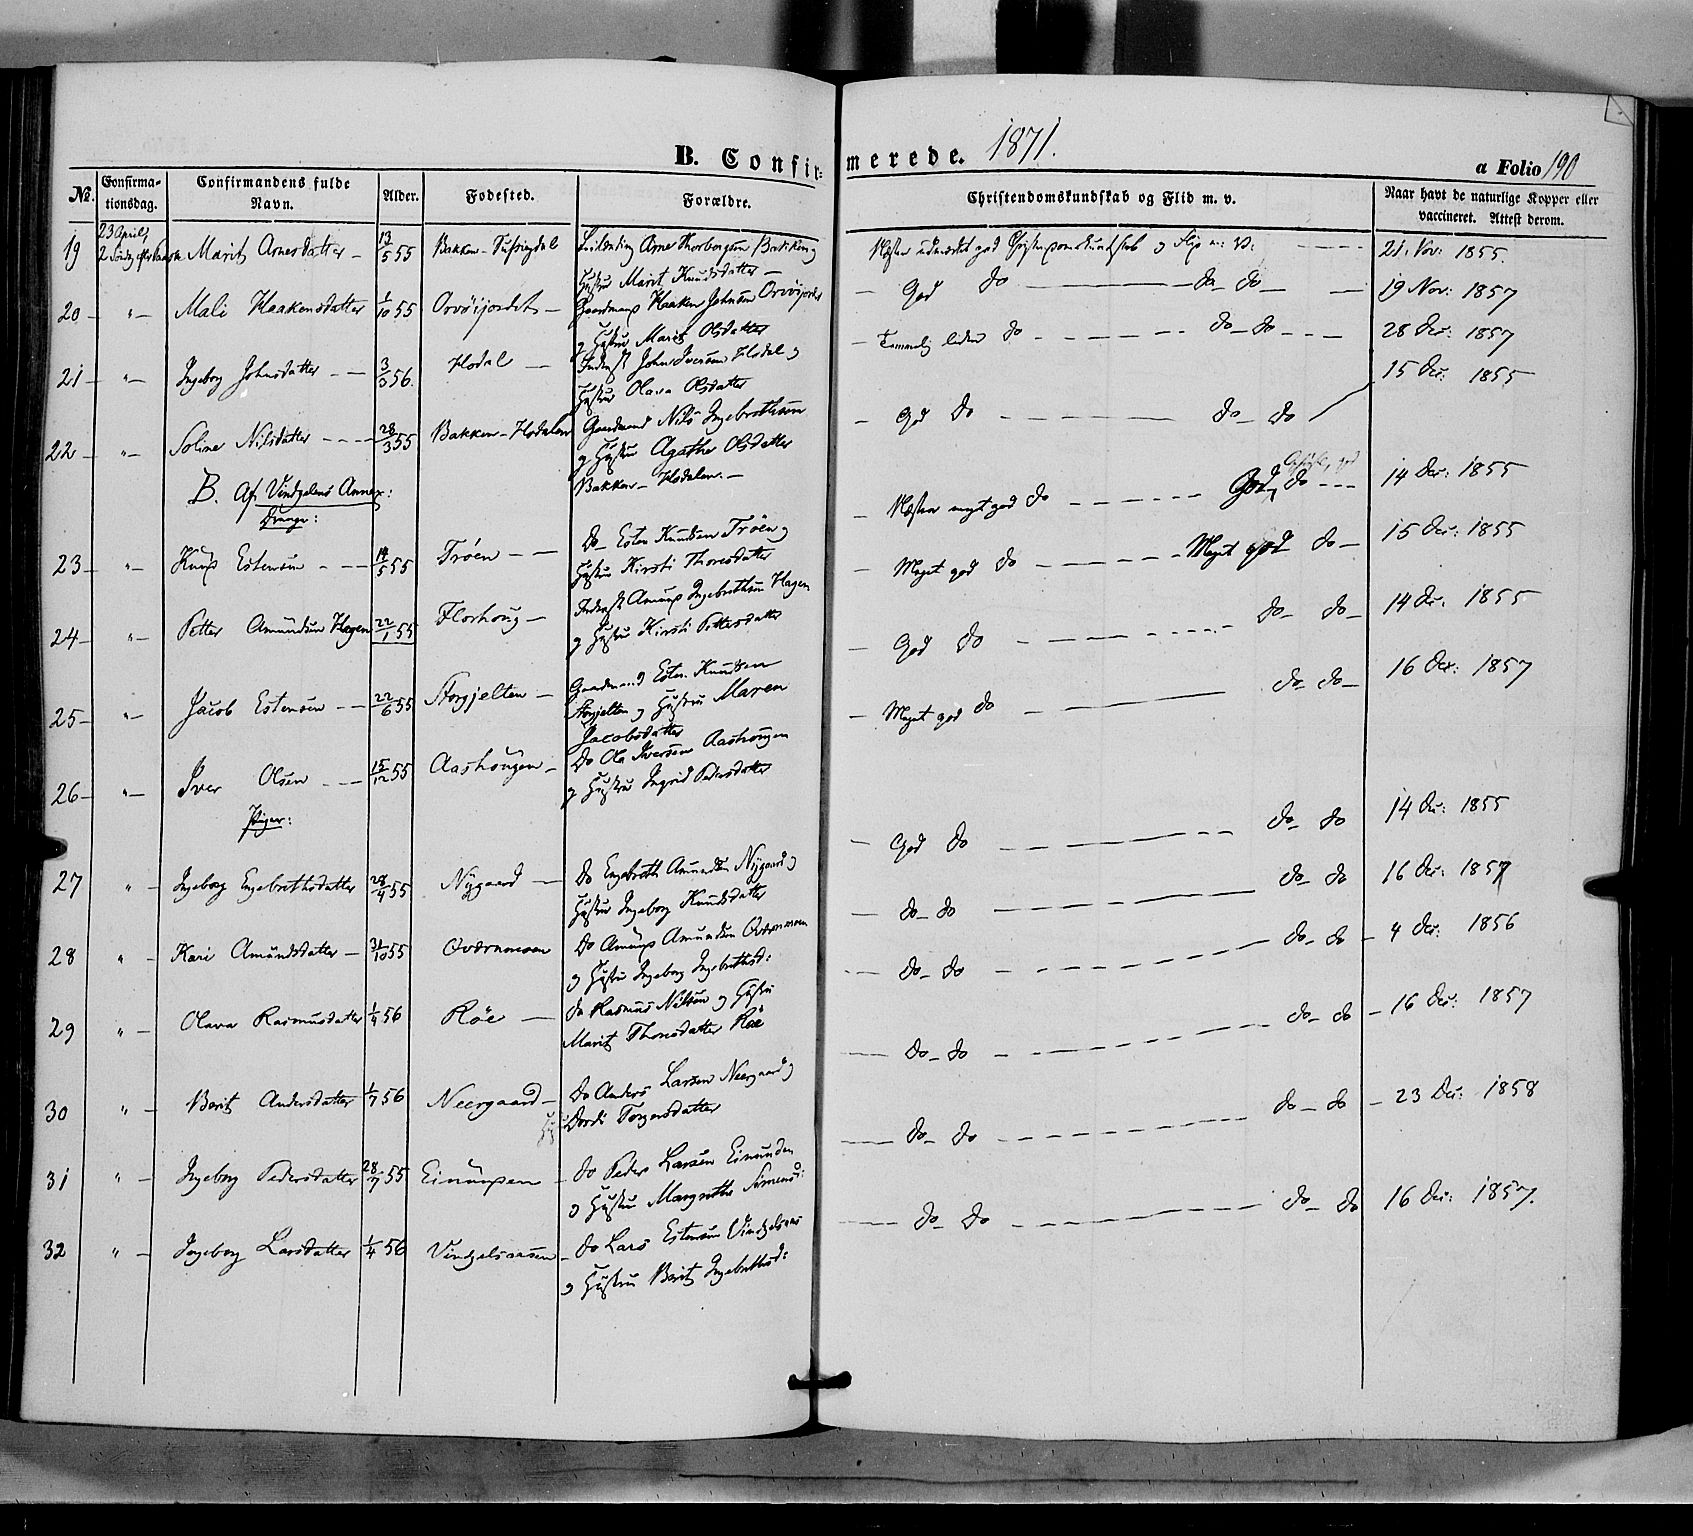 B. Confir- merede. 1871.
a Folio 190
No. Confirmationsdag. Confirmandens fulde Navn. Alder. Fødested. Forældre. Christendomskundskab og Flid m. v. Naar havt de naturlige Kopper eller vaccineret. Attest derom.
23 April
19 2 Søndag efter Paaske Marit Arnesdatter – 13/5 55 Bakken Arne Thorbergsen Bakken og 21. Nov: 1855.
Hustru Marit Knudsdatter –
20 – " – Mali Haakensdatter 1/10 55 Orvöijordet – Gaardmand Haaken Johnsen Orvöijordet – God do – do – do – 19 Nov: 1857
og Hustru Marit Olsdatter
21 – " – Ingeborg Johnsdatter – 3/3 56. Hodal – Inderst John Iversen Hodal og – Temmelig liden do – do – do – 28 Dec: 1857
Hustru Olava Olsdatter
22 – " – Soline Nilsdatter – 28/3 55 Bakken – Hodalen Gaardmand Nils Ingebrethsen – God do – do – do 15 Dec: 1855
og Hustru Agathe Olsdatter
Bakken – Hodalen. –
B. Af Vindgelens Annex:
Drenge:
23 – " – Knud Estensen – 14/5 55 Tröen – Do – Esten Knudsen Tröen og – Næsten meget god do – God, do – 14 Dec: 1855
Hustru Kirsti Thoresdatter
24 – " – Petter Amundsen Hagen 22/1 55 Florhoug – Inderst Amund Ingebrethsen Hagen – Meget god do – Meget god do – 15 Dec: 1855
og Hustru Kirsti Pettersdatter
25 – " – Jacob Estensen – 22/6 55 Storfjelten – Gaardmand Esten Knudsen – God do – do – do – 14 Dec. 1855
Storfjelten og Hustru Maren
Jacobsdatter
26 – " – Iver Olsen – 15/12 55 Aashougen – Do Ola Iversen Aashougen – Meget god do – do – do – 16 Dec: 1857
og Hustru Ingrid Pedersdatter
Piger:
27 " – Ingeborg Engebrethsdatter 28/4 55 Nygaard – Do Engebreth Amundsen Nygaard og – God do – do – do 14 Dec: 1855
Hustru Ingeborg Knudsdatter
28 " – Kari Amundsdatter – 31/10 55 Qværnmoen Do Amund Amundsen Qværnmoen – do – do – do – do 16 Dec: 1857
og Hustru Ingeborg Ingebrethsd:
29 " – Olava Rasmusdatter 1/4 56 Röe – do Rasmus Nilsen og Hustru – do – do – do – do – 4 Dec: 1856
Marit Thoresdatter Röe
30 " – Berit Andersdatter 1/7 56 Neergaard – Do Anders Larsen Neergaard og – do – do – do – do – 16 Dec: 1857
Dordi Torgersdatter
31 " – Ingeborg Pedersdatter 28/7 55 Einunden – do Peder Larsen Einunden – do – do – do – do – 23 Dec: 1858
og Hustru Margrethe Simensd:
32 " – Ingeborg Larsdatter 1/4 56 Vindgelsaasen – do Lars Estensen Vindgelsaas – do – do – do – do 16 Dec: 1857.
og Hustru Berit Ingebrethsd: